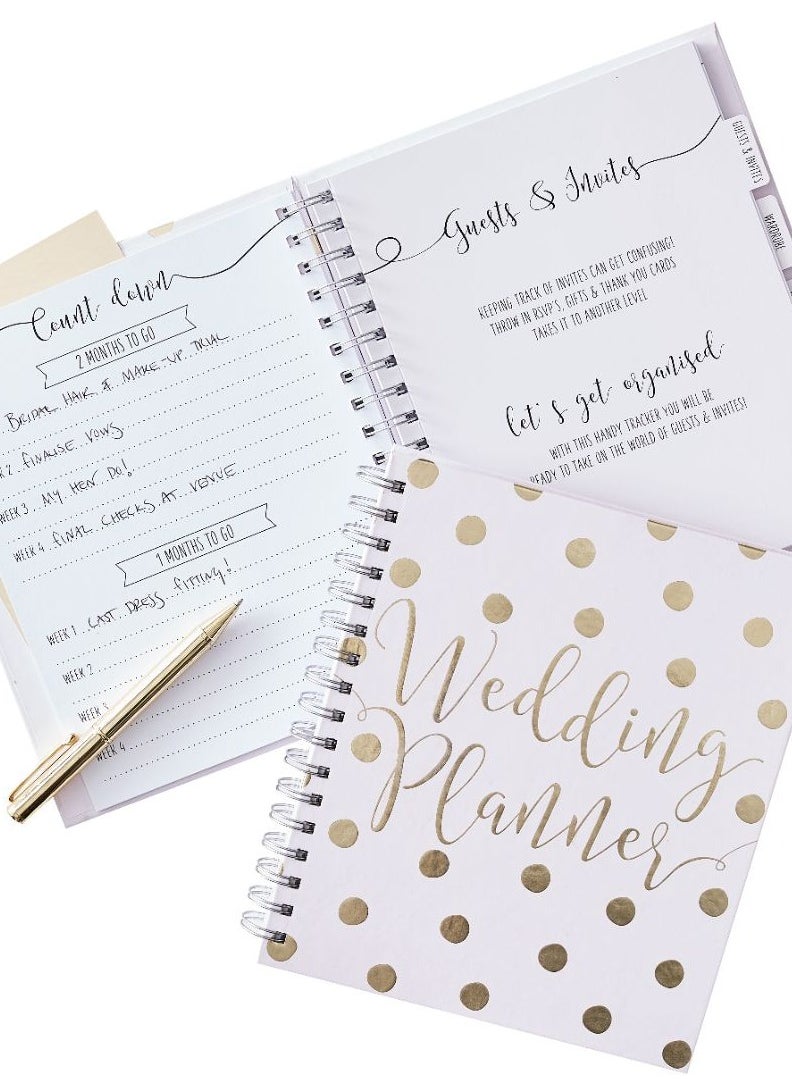 Count down
2 MONTHS TO GO
BRIDAL HAIR & MAKE-UP TRIAL
2 FINALISE VOWS
WEEK 3 MY HEN DO!
WEEK 4 FINAL CHECKS AT VENUE
1 MONTHS TO GO
WEEK 1 LAST DRESS FITTING!
WEEK 2
WEEK 3
WEEK 4
Guests & Invites
KEEPING TRACK OF INVITES CAN GET CONFUSING!
THROW IN RSVP'S, GIFTS & THANK YOU CARDS
TAKES IT TO ANOTHER LEVEL
let's get organised
WITH THIS HANDY TRACKER YOU WILL BE
READY TO TAKE ON THE WORLD OF GUESTS & INVITES!
GUESTS & INVITES
WARDROBE
Wedding
Planner